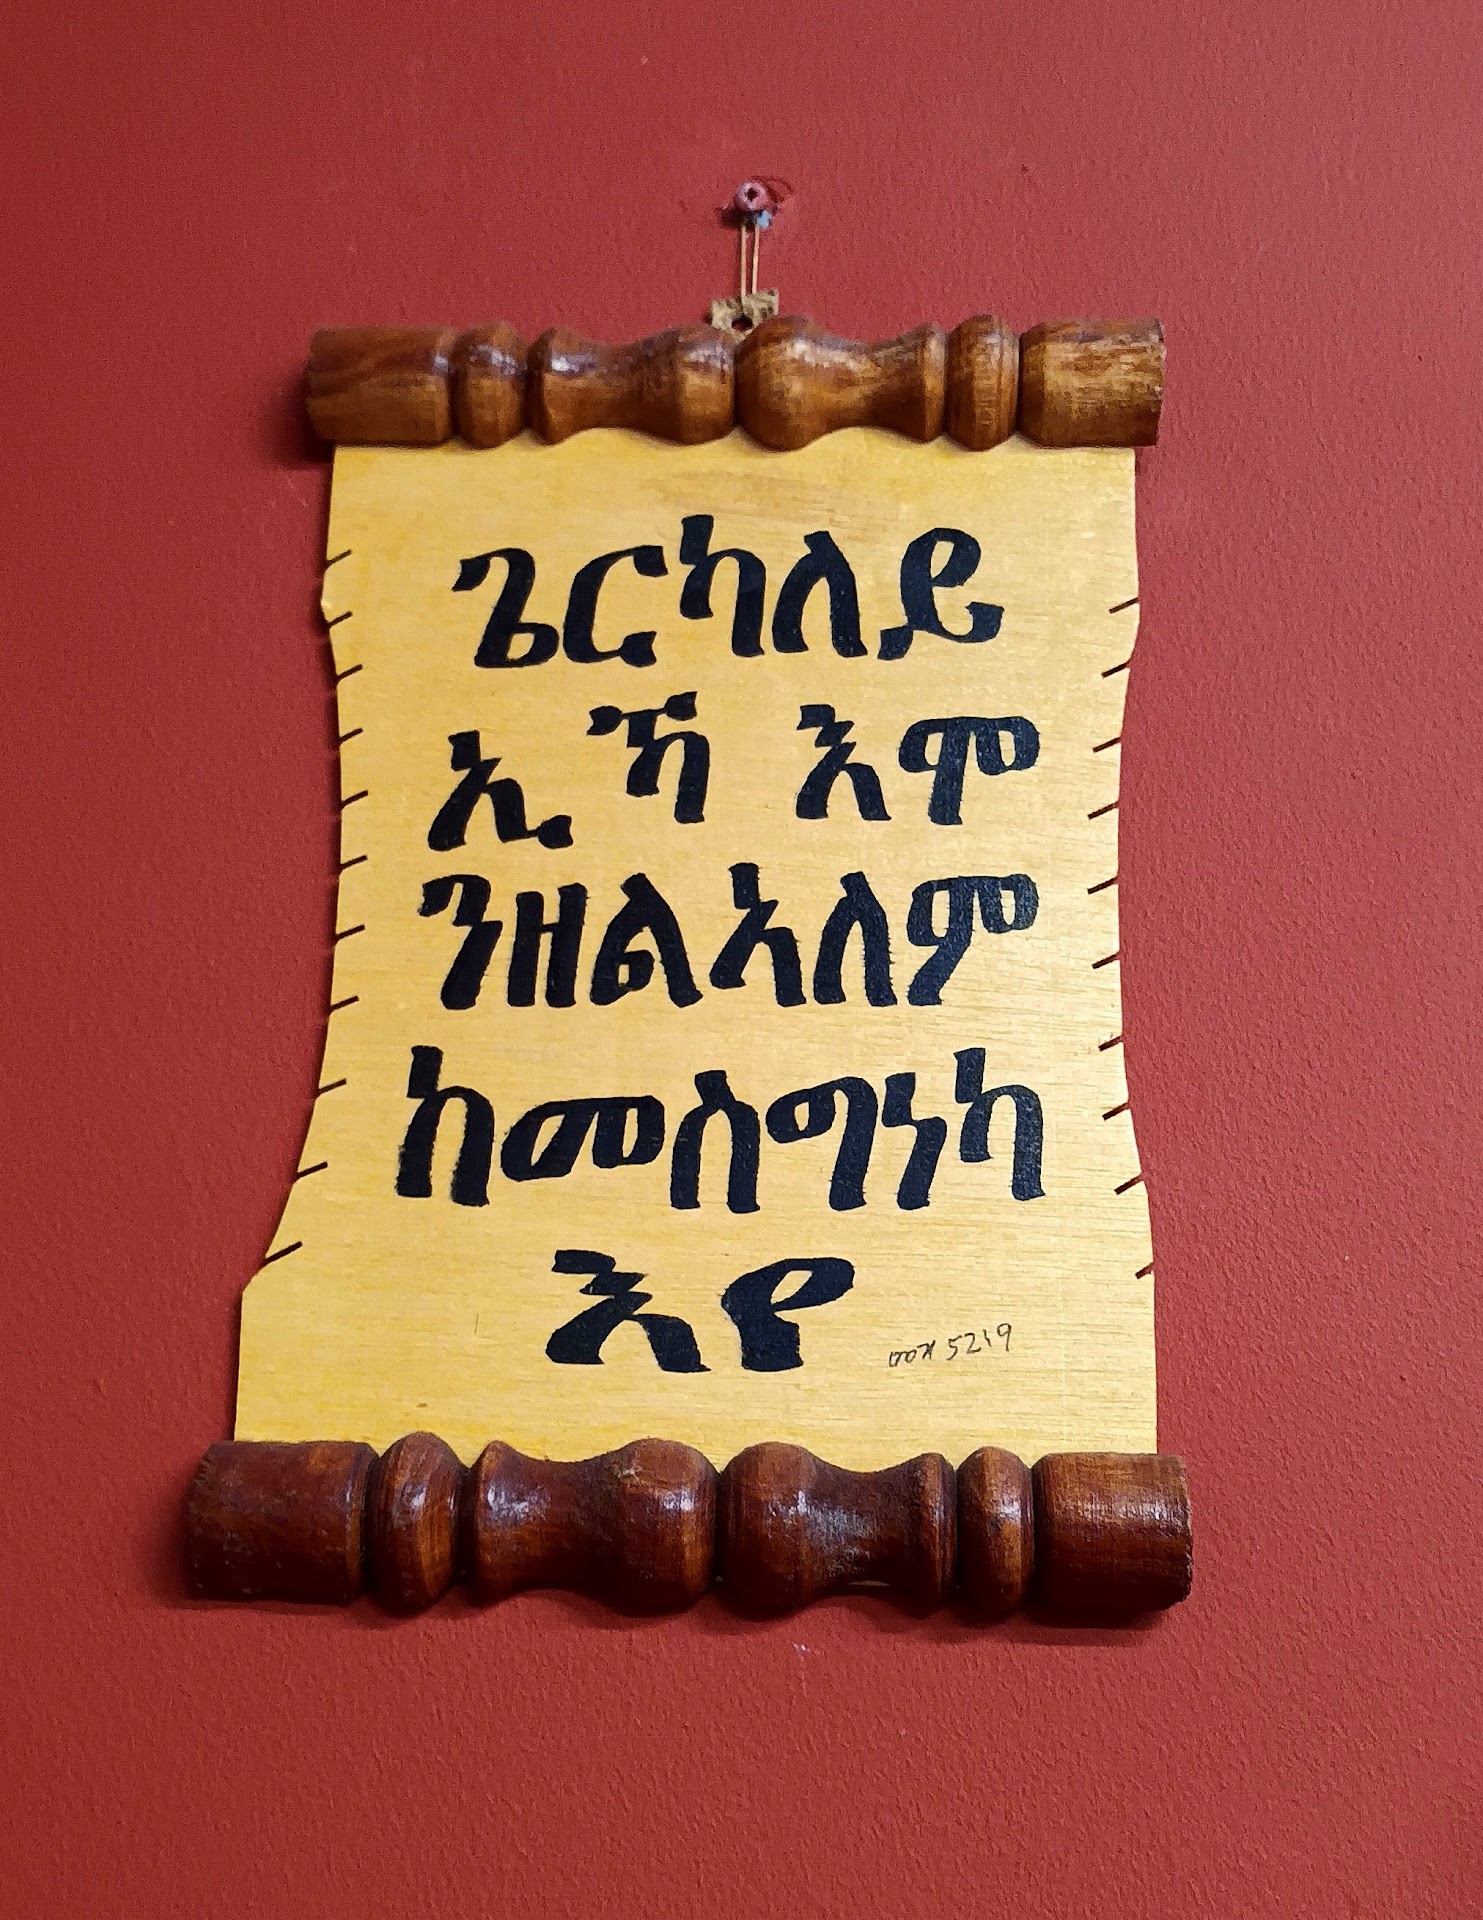 ጌርካለይ
ኢኻ እሞ
ንዘልኣለም
ከመስግነካ
እየ
መዝ 52፡9